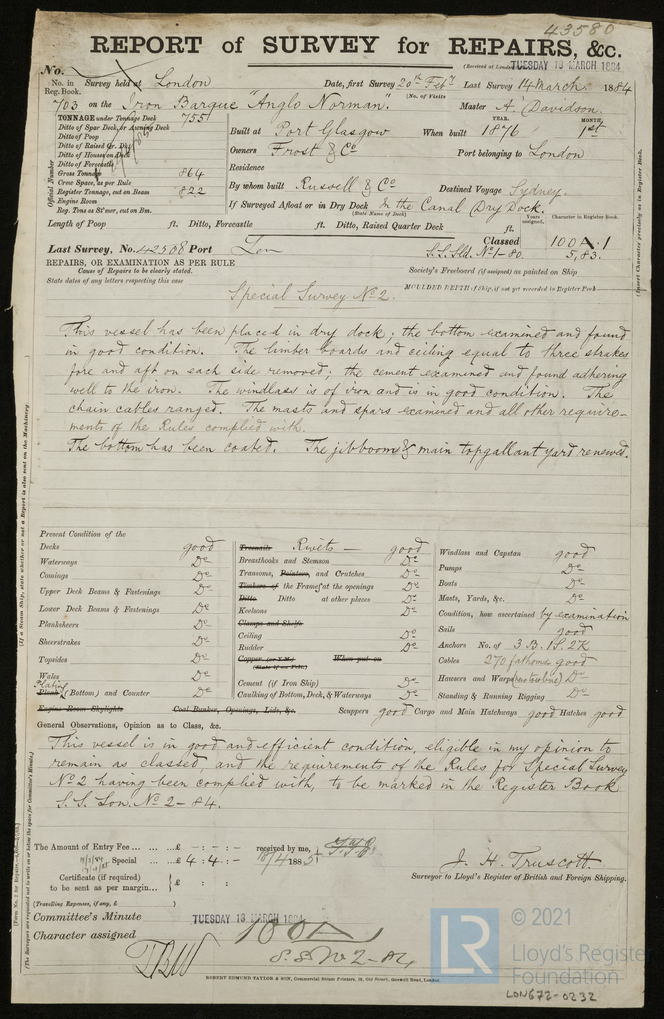 43580
REPORT of SURVEY for REPAIRS, &c.
(Received at London TUESDAY 18 MARCH 1884
No.
No. in Reg. Book. Survey held at London Date, first Survey 20th Feby Last Survey 14 March 1884
(No. of Visits
703 on the Iron Barque "Anglo Norman." Master A. Davidson.
TONNAGE under Tonnage Deck 755
Ditto of Spar Deck, or Awning Deck
Ditto of Poop
Ditto of Raised Qr. Dk.
Ditto of Houses on Deck
Ditto of Forecastle
Gross Tonnage 864
Crew Space, as per Rule
Register Tonnage, cut on Beam 822
Engine Room
Reg. Tons as St'mer, cut on Bm.
Official Number
Built at Port Glasgow When built YEAR. 1876 MONTH. 1st
Owners Frost & Co Port belonging to London
Residence
By whom built Russell & Co Destined Voyage Sydney.
If Surveyed Afloat or in Dry Dock In the Canal Dry Dock.
(State Name of Dock)
Length of Poop ft. Ditto, Forecastle ft. Ditto, Raised Quarter Deck ft.
Years assigned. Character in Register Book.
Last Survey, No. 42508 Port Lon Classed 100 A. 1
S.S. Sld. No 1-80. 5,83.
REPAIRS, OR EXAMINATION AS PER RULE
Cause of Repairs to be clearly stated.
State dates of any letters respecting this case
Society's Freeboard (if assigned) as painted on Ship
MOULDED DEPTH of Ship, if not yet recorded in Register Book
(Insert Character precisely as in Register Book.
Special Survey No 2.
This vessel has been placed in dry dock; the bottom examined and found
in good condition. The limber boards and ceiling equal to three strakes
fore and aft on each side removed; the cement examined and found adhering
well to the iron. The windlass is of iron and is in good condition. The
chain cables ranged. The masts and spars examined and all other require-
ments of the Rules complied with.
The bottom has been coated. The jibboom & main topgallant yard renewed.
Present Condition of the
Decks good
Waterways Do
Comings Do
Upper Deck Beams & Fastenings Do
Lower Deck Beams & Fastenings Do
Planksheers Do
Sheerstrakes Do
Topsides Do
Wales Do
Plating
Plank (Bottom) and Counter Do
Engine Room Skylights Coal Bunker, Openings, Lids, &c.
Treenails Rivets — good
Breasthooks and Stemson Do
Transoms, Pointers, and Crutches Do
Timbers of the Frames at the openings Do
Ditto Ditto at other places Do
Keelsons Do
Clamps and Shelfs
Ceiling Do
Rudder Do
Copper (or Y.M.) When put on
(State if on Felt.)
Cement (if Iron Ship) Do
Caulking of Bottom, Deck, & Waterways Do
Windlass and Capstan good
Pumps Do
Boats Do
Masts, Yards, &c. Do
Condition, how ascertained by examination
Sails good
Anchors No. of 3 B. 1 S. 2 K
Cables 270 fathoms good
Hawsers and Warps Do
Standing & Running Rigging Do
Scuppers good Cargo and Main Hatchways good Hatches good
General Observations, Opinion as to Class, &c.
This vessel is in good and efficient condition, eligible in my opinion to
remain as classed, and the requirements of the Rules for Special Survey
No 2 having been complied with, to be marked in the Register Book
S.S. Lon. No 2-84.
The Amount of Entry Fee ... ...£ - : - : - received by me,
Special ... ...£ 4 : 4 : - 18/4/1885
Certificate (if required) to be sent as per margin... £ : :
(Travelling Expenses, if any, £ )
J. H. Truscott.
Surveyor to Lloyd's Register of British and Foreign Shipping.
Committee's Minute TUESDAY 18 MARCH 1884
Character assigned 100 A 1
S.S. No 2-84
ROBERT EDMUND TAYLOR & SON, Commercial Steam Printers, 19, Old Street, Goswell Road, London.
(If a Steam Ship, state whether or not a Report is also sent on the Machinery.
(The Surveyors are requested not to write on or below the space for Committee's Minute.)
LR
© 2021
Lloyd's Register
Foundation
LON672-0232